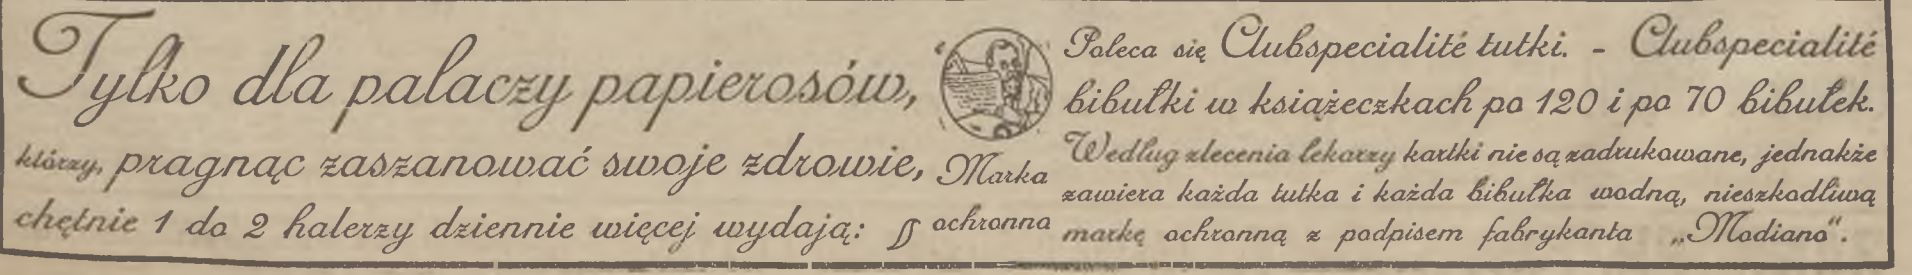 Tylko dla palaczy papierosów,
którzy, pragnąc zaszanować swoje zdrowie,
chętnie 1 do 2 halerzy dziennie więcej wydają:
Marka
ochronna
Poleca się Clubspecialité tutki. - Clubspecialité
bibułki w książeczkach po 120 i po 70 bibułek.
Według zlecenia lekarzy kartki nie są zadrukowane, jednakże
zawiera każda tutka i każda bibułka wodną, nieszkodliwą
markę ochronną z podpisem fabrykanta „Modiano“.